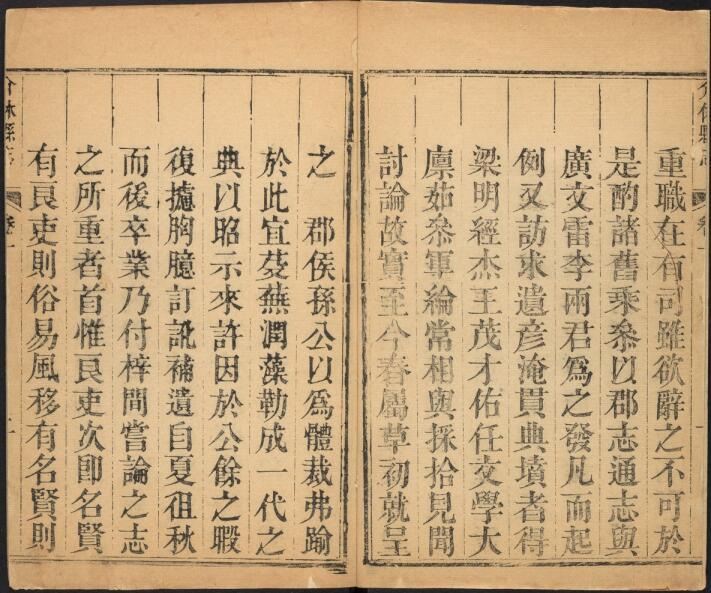 重職在有司雖欲辭之不可於
是酌諸舊乘叅以郡志通志與
廣文雷李兩君爲之發凡而起
例又訪求遺彦淹貫典墳者得
梁明經杰王茂才佑任文學大
廪茹叅軍綸常相與採拾見聞
討論故實至今春屬草初就呈
之　郡侯孫公以爲體裁弗踰
於此宜芟蕪潤藻勒成一代之
典以昭示來許因於公餘之暇
復攄胸臆訂訛補遺自夏徂秋
而後卒業乃付梓間嘗論之志
之所重者首惟良吏次卽名賢
有良吏則俗易風移有名賢則
介休縣志
卷一